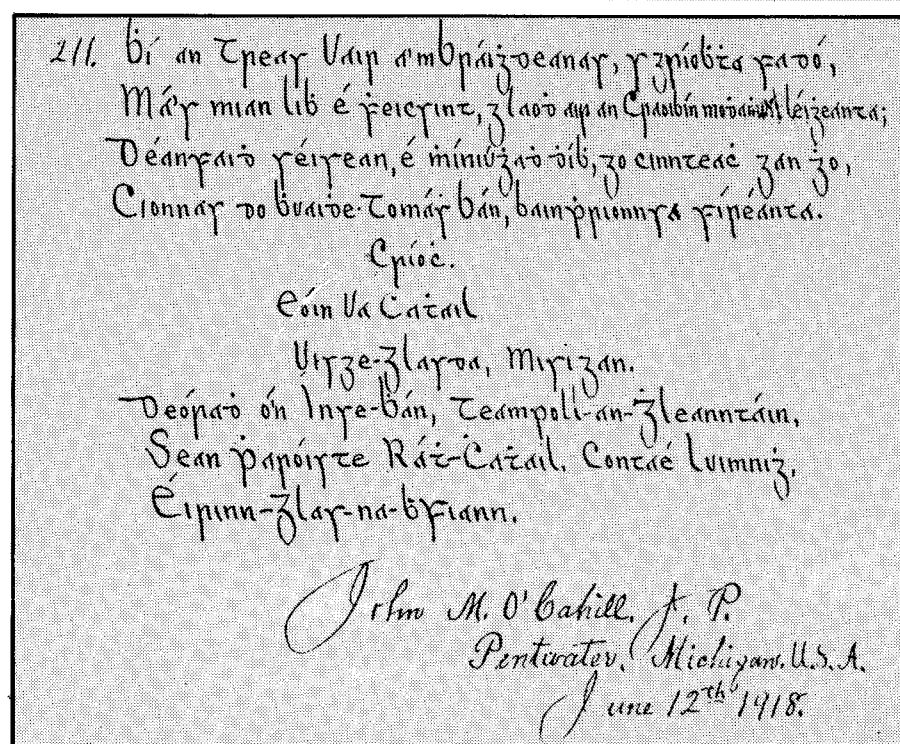 211. Ḃí an Treas Uair a'mBráiġdeanas, sgríoḃta fadó,
Má's mian liḃ é ḟeicsint, glaoḋ air an Craoiḃín léiġeanta;
Déanfaiḋ séisean, é ṁíniúġaḋ ḋíḃ, go cinnteaċ gan ġo,
Cionnas do ḃuaiḋe-Tomás bán, bainṗrionnsa fíréanta.
Críoċ.
Eóin Ua Caṫail
Uisge-glasda, Misigan.
Deóraḋ ó'n Inse-ḃán, Teampoll-an-Ġleanntáin,
Sean ṗaróiste Ráṫ-Caṫail, Contaé Luimniġ,
Éirinn-Ġlas-na-ḃFiann.
John M. O'Cahill, J. P.
Pentwater, Michigan. U.S.A.
June 12th 1918.